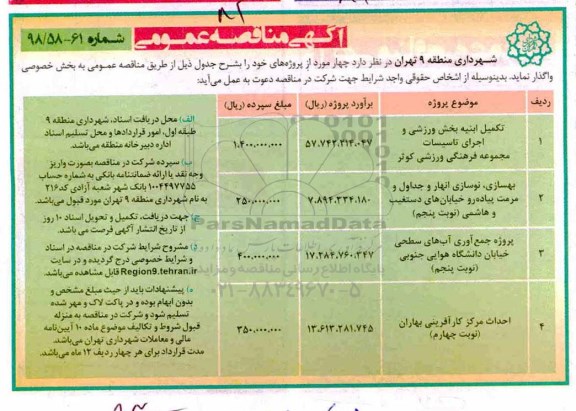 آگهی مناقصه عمومی
شماره ۶۱-۹۸/۵۸
شهرداری منطقه ۹ تهران در نظر دارد چهار مورد از پروژه‌های خود را بشرح جدول ذیل از طریق مناقصه عمومی به بخش خصوصی
واگذار نماید. بدینوسیله از اشخاص حقوقی واجد شرایط جهت شرکت در مناقصه دعوت به عمل می‌آید:
ردیف موضوع پروژه برآورد پروژه (ریال) مبلغ سپرده (ریال)
۱ تکمیل ابنیه بخش ورزشی و
اجرای تاسیسات
مجموعه فرهنگی ورزشی کوثر
۵۷.۷۴۲.۳۱۴.۰۴۷ ۱.۴۰۰.۰۰۰.۰۰۰
۲ بهسازی، نوسازی انهار و جداول و
مرمت پیاده‌رو خیابان‌های دستغیب
و هاشمی (نوبت پنجم)
۷.۸۹۴.۳۳۴.۱۸۰ ۲۵۰.۰۰۰.۰۰۰
۳ پروژه جمع‌آوری آب‌های سطحی
خیابان دانشگاه هوایی جنوبی
(نوبت پنجم)
۱۷.۲۸۴.۷۶۰.۳۴۷ ۴۰۰.۰۰۰.۰۰۰
۴ احداث مرکز کارآفرینی بهاران
(نوبت چهارم)
۱۳.۶۱۳.۲۸۱.۷۴۵ ۳۵۰.۰۰۰.۰۰۰
الف) محل دریافت اسناد، شهرداری منطقه ۹
طبقه اول، امور قراردادها و محل تسلیم اسناد
اداره دبیرخانه منطقه می‌باشد.
ب) سپرده شرکت در مناقصه بصورت واریز
وجه نقد یا ارائه ضمانتنامه بانکی به شماره حساب
۱۰۰۴۴۹۷۷۵۵ بانک شهر شعبه آزادی کد ۲۱۶
به نام شهرداری منطقه ۹ تهران مورد قبول می‌باشد.
ج) جهت دریافت، تکمیل و تحویل اسناد ۱۰ روز
از تاریخ انتشار آگهی فرصت می باشد.
د) مشروح شرایط شرکت در مناقصه در اسناد
و شرایط خصوصی درج گردیده و در سایت
Region9.tehran.ir قابل مشاهده می‌باشد.
ه) پیشنهادات باید از حیث مبلغ مشخص و
بدون ابهام بوده و در پاکت لاک و مهر شده
تسلیم شود و شرکت در مناقصه به منزله
قبول شروط و تکالیف موضوع ماده ۱۰ آیین‌نامه
مالی و معاملات شهرداری تهران می‌باشد.
مدت قرارداد برای هر چهار ردیف ۱۲ ماه می‌باشد.
ParsNamadData
پایگاه اطلاع رسانی مناقصه و مزایده
۰۲۱-۸۸۳۴۹۶۷۰-۵